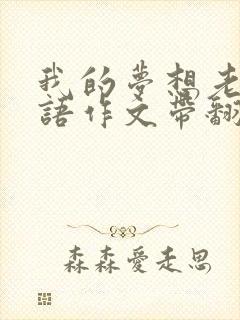 我的夢想老
語作文帶翻
森森愛走思